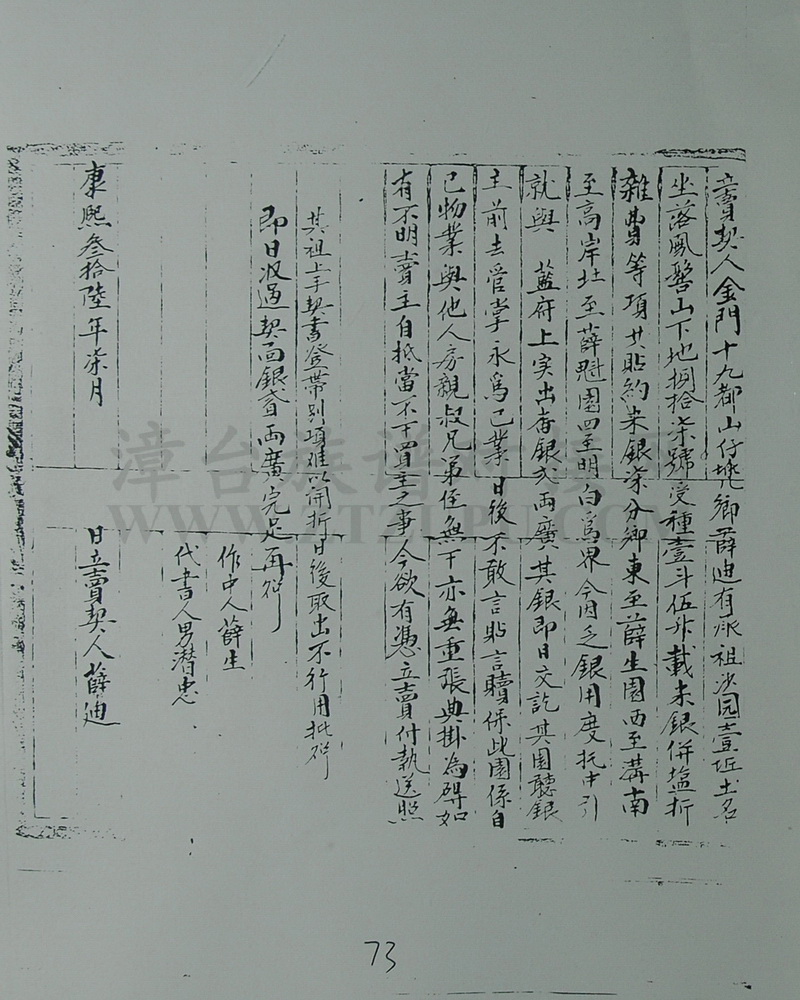 立賣契人金門十九都山仔堯鄉薛迪有承祖沙园壹坵土名
坐落鳳髻山下地捌拾柒號受種壹斗伍升載米銀併塩折
雜費等項共貼約米銀柒分御東至薛生園西至溝南
至高岸北至薛魁園四至明白為界今因乏銀用度托中引
就與 藍府上実出番銀弍両廣其銀即日交訖其園聽銀
主前去管掌永為己業日後不敢言貼言贖保此園係自
己物業與他人房親叔兄弟侄無干亦無重張典掛為碍如
有不明賣主自抵當不干買主之事今欲有憑立賣付執送照
其祖上手契書登帶別項难以開折日後取出不行用批炤
即日收過契面銀弍両廣完足再炤
作中人薛生
代書人男潛忠
康熙叁拾陸年柒月 日立賣契人薛迪
73
漳台族谱
WWW.ZTZUPU.COM